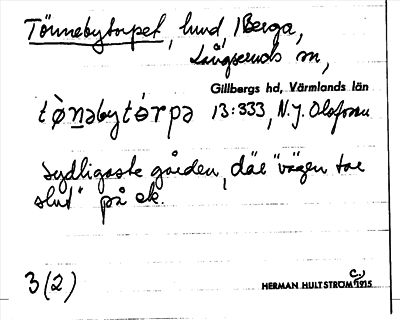 Tönnebytorpet, lund, 1 Berga,
Långseruds sn,
Gillbergs hd, Värmlands län
tò̀nəbytórpə 13:333, N.J. Olofsson
sydligaste gården, där "vägen tar
slut" på ek.
3(2)
HERMAN HULTSTRÖM C., 1915